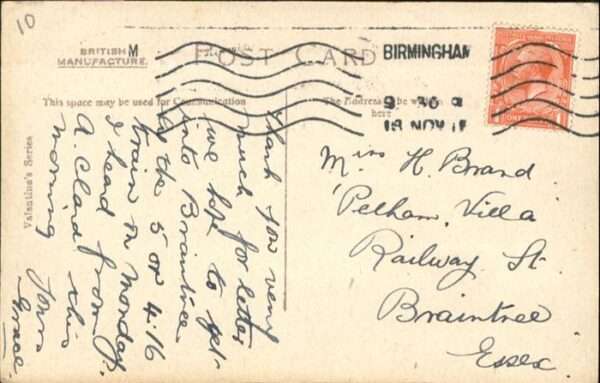 10
BRITISH M
MANUFACTURE.
POST CARD
BIRMINGHAM
9 30
18 NOV 1
This space may be used for Communication
The Address to be written
here
Valentine's Series
thank you very
much for letter
we hope to get
into Braintree
by the 5 or 4.16
train on Monday
I heard from
A. Clard this
morning
Yours
Grace.
Miss H. Brand
Pelham Villa
Railway St
Braintree
Essex.